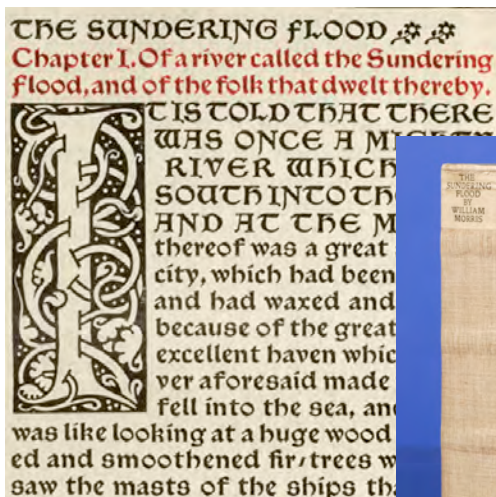 THE SUNDERING FLOOD
Chapter I. Of a river called the Sundering
Flood, and of the folk that dwelt thereby.
IT IS TOLD THAT THERE
WAS ONCE A
RIVER WHICH
SOUTH INTO
AND AT THE
thereof was a great
city, which had been
and had waxed and
because of the great
excellent haven
ver aforesaid made
fell into the sea,
was like looking at a huge wood
ed and smoothened fir-trees
saw the masts of the ships
THE
SUNDERING
FLOOD
BY
WILLIAM
MORRIS